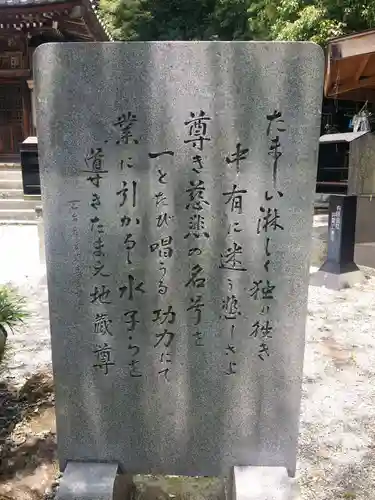 たましい淋しく独り狭き
中有に迷う悲しさよ
尊き慈悲の名号を
一とたび唱うる功力にて
業に引かるゝ水子らを
尊きたまえ地蔵尊